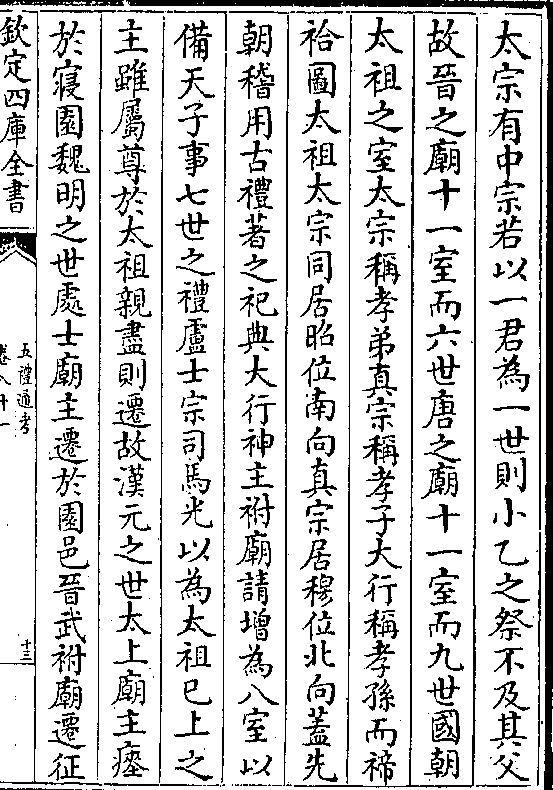 太宗有中宗若以一君為一世則小乙之祭不及其父
故晉之廟十一室而六世唐之廟十一室而九世國朝
太祖之室太宗稱孝弟真宗稱孝子大行稱孝孫而禘
祫圖太祖太宗同居昭位南向真宗居穆位北向蓋先
朝稽用古禮著之祀典大行神主祔廟請增為八室以
備天子事七世之禮盧士宗司馬光以為太祖已上之
主雖屬尊於太祖親盡則遷故漢元之世太上廟主瘞
於寢園魏明之世處士廟主遷於園邑晉武祔廟遷征
欽定四庫全書
五禮通考
卷八十一
十三